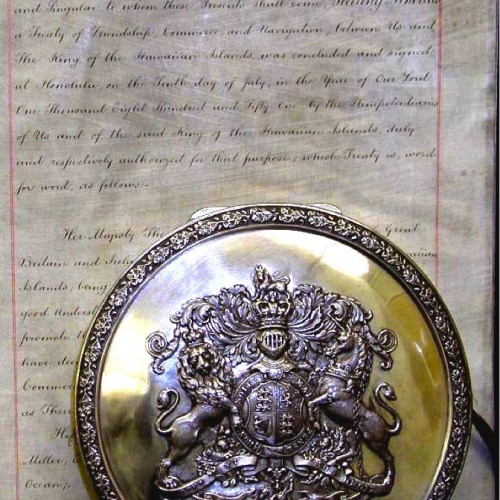 and Singular to whom these Presents shall come, Greeting Whereas
a Treaty of Friendship, Commerce, and Navigation, between Us and
The King of the Hawaiian Islands, was concluded and signed
at Honolulu, on the Tenth day of July, in the Year of Our Lord
One Thousand Eight Hundred and Fifty One by the Plenipotentiaries
of Us and of the said King of the Hawaiian Islands, duly
and respectively authorized for that purpose; which Treaty is, word
for word, as follows:-
Her Majesty The Great
Britain and Hawaiian
Islands, being
good
promote
have
as
Miller,
Ocean;